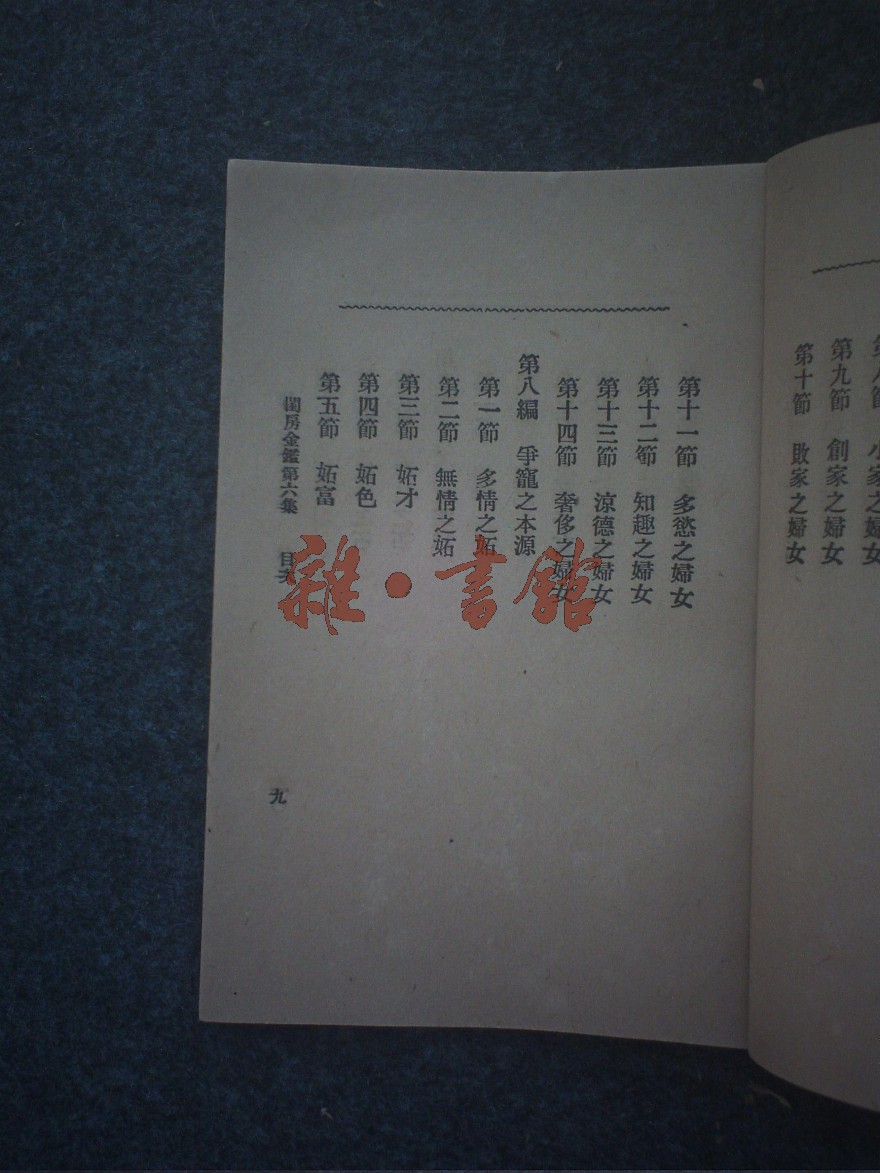 第九節　創家之婦女
第十節　敗家之婦女
第十一節　多慾之婦女
第十二節　知趣之婦女
第十三節　涼德之婦女
第十四節　奢侈之婦女
第八編　爭寵之本源
第一節　多情之妬
第二節　無情之妬
第三節　妬才
第四節　妬色
第五節　妬富
閨房金鑑第六集　目次
九
雜·書館